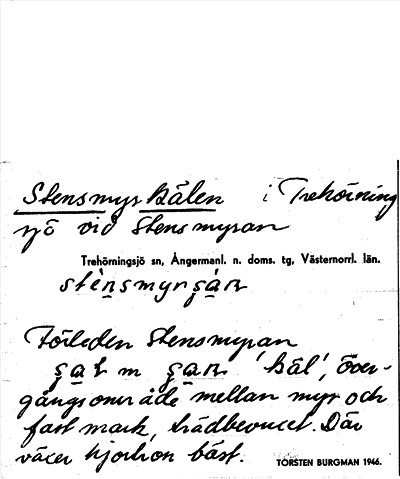 Stensmyrkälen i Trehörning
sjö vid Stensmyran
Trehörningsjö sn, Ångermanl. n. doms. tg, Västernorrl. län.
Förleden Stensmyran
m 'käl', över-
gångsområde mellan myr och
fast mark, trädbevuxet. Där
växer hjortron bäst.
TORSTEN BURGMAN 1946.